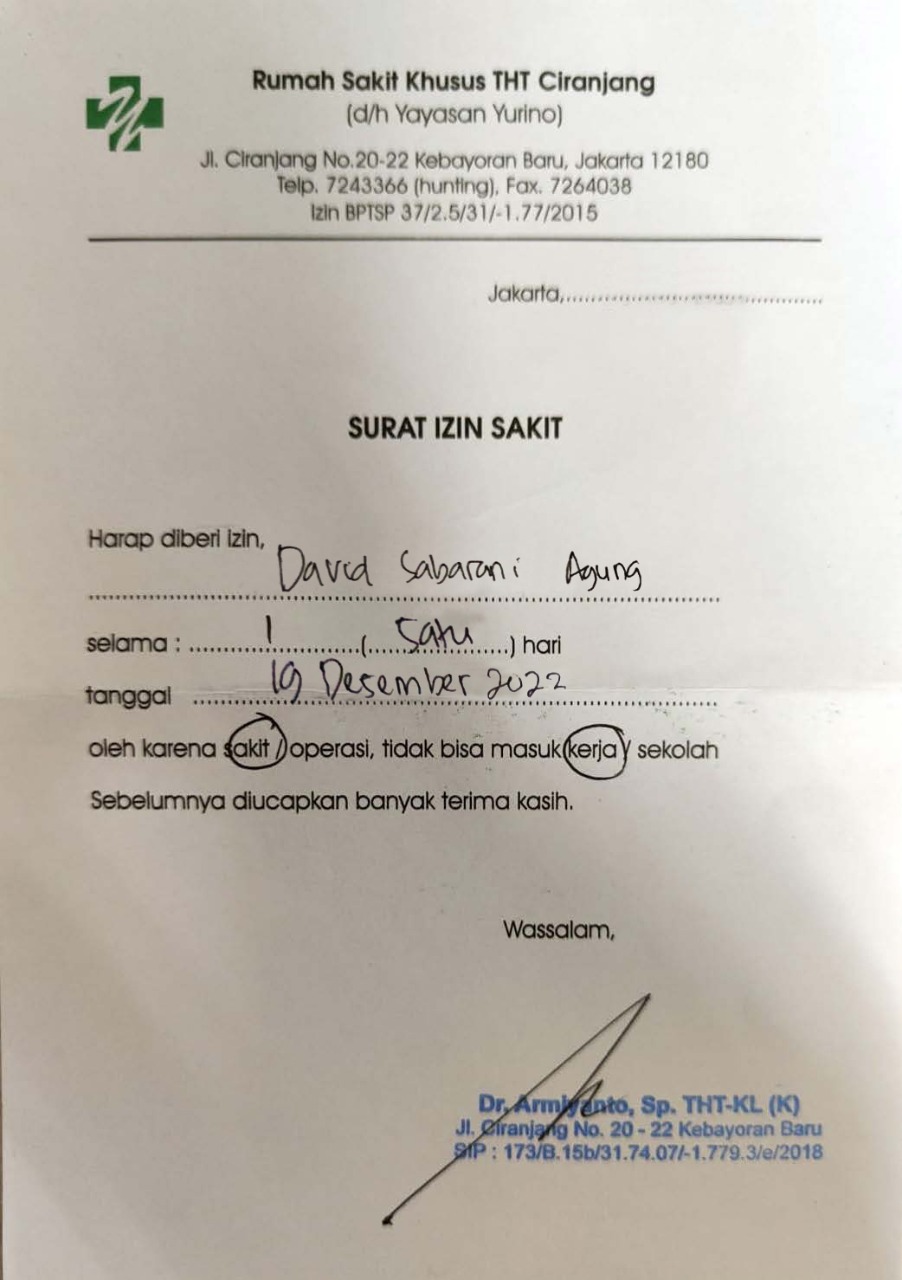 Rumah Sakit Khusus THT Ciranjang
(d/h Yayasan Yurino)
Jl. Ciranjang No.20-22 Kebayoran Baru, Jakarta 12180
Telp. 7243366 (hunting), Fax. 7264038
Izin BPTSP 37/2.5/31/-1.77/2015
Jakarta,..........................................
SURAT IZIN SAKIT
Harap diberi izin,
David Sabarani Agung
selama : 1 (Satu) hari
tanggal 19 Desember 2022
oleh karena sakit / operasi, tidak bisa masuk kerja / sekolah
Sebelumnya diucapkan banyak terima kasih.
Wassalam,
Dr. Armiyanto, Sp. THT-KL (K)
Jl. Ciranjang No. 20 - 22 Kebayoran Baru
SIP : 173/B.15b/31.74.07/-1.779.3/e/2018